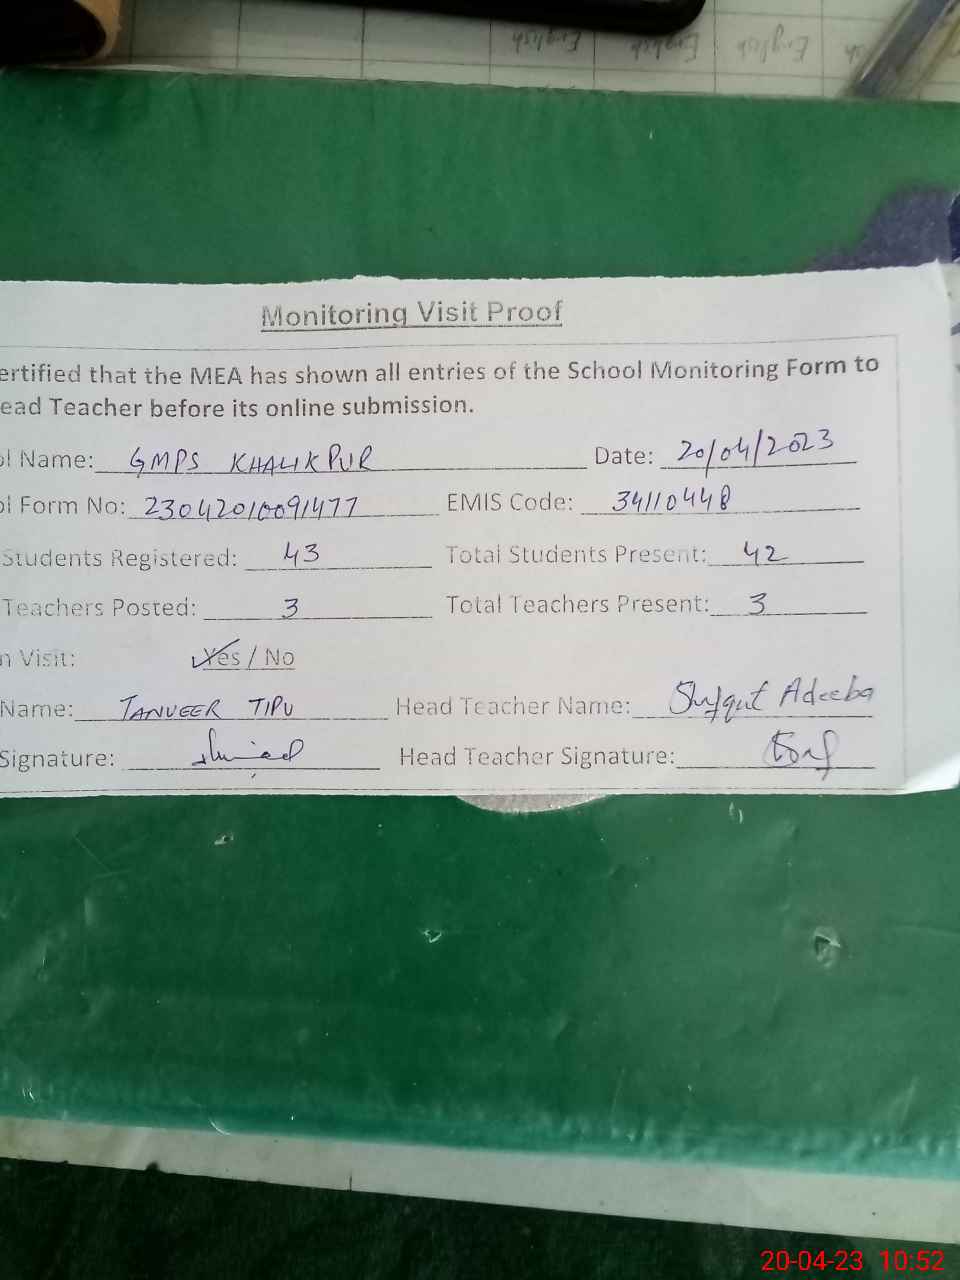 English English English sh
Monitoring Visit Proof
ertified that the MEA has shown all entries of the School Monitoring Form to
ead Teacher before its online submission.
ol Name: GMPS KHALIKPUR Date: 20/04/2023
ol Form No: 23042010091477 EMIS Code: 34110448
Students Registered: 43 Total Students Present: 42
Teachers Posted: 3 Total Teachers Present: 3
n Visit: Yes / No
Name: TANVEER TIPU Head Teacher Name: Shafqut Adeeba
Signature: Head Teacher Signature:
20-04-23 10:52